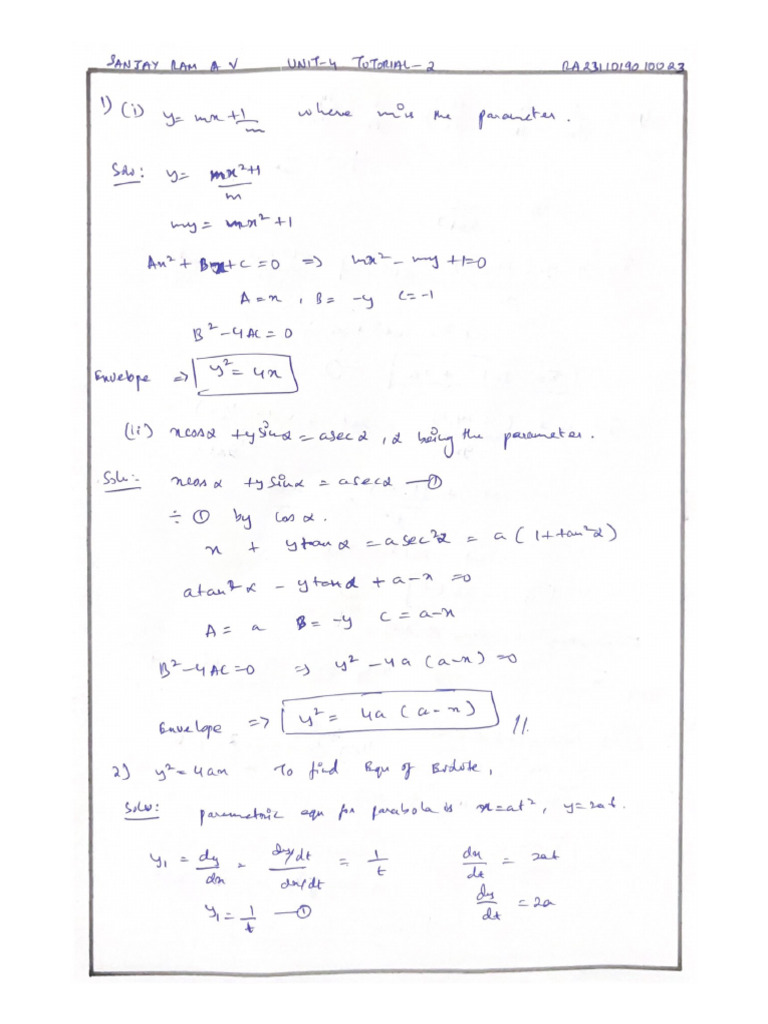 SANJAY RAM A V UNIT-4 TUTORIAL-2 RA2311019010023
1) (i) y = mx + 1/m where m is the parameter.
Soln: y = mx²+1/m
my = mx²+1
Ax² + Bx + C = 0 => mx² - my + 1 = 0
A = x, B = -y C = -1
B² - 4AC = 0
Envelope => y² = 4x
(ii) xcosα + ysinα = asecα, α being the parameter.
Soln: xcosα + ysinα = asecα —①
÷ ① by cosα.
x + ytanα = asec²α = a(1+tan²α)
atan²α - ytanα + a-x = 0
A = a B = -y C = a-x
B²-4AC=0 => y² - 4a(a-x) = 0
Envelope => y² = 4a(a-x) //.
2) y² = 4ax To find Equ of Evolute,
Soln: parametric equ for parabola is x=at², y=2at.
y₁ = dy/dx = dy/dt / dx/dt = 1/t dx/dt = 2at
y₁ = 1/t —① dy/dt = 2a